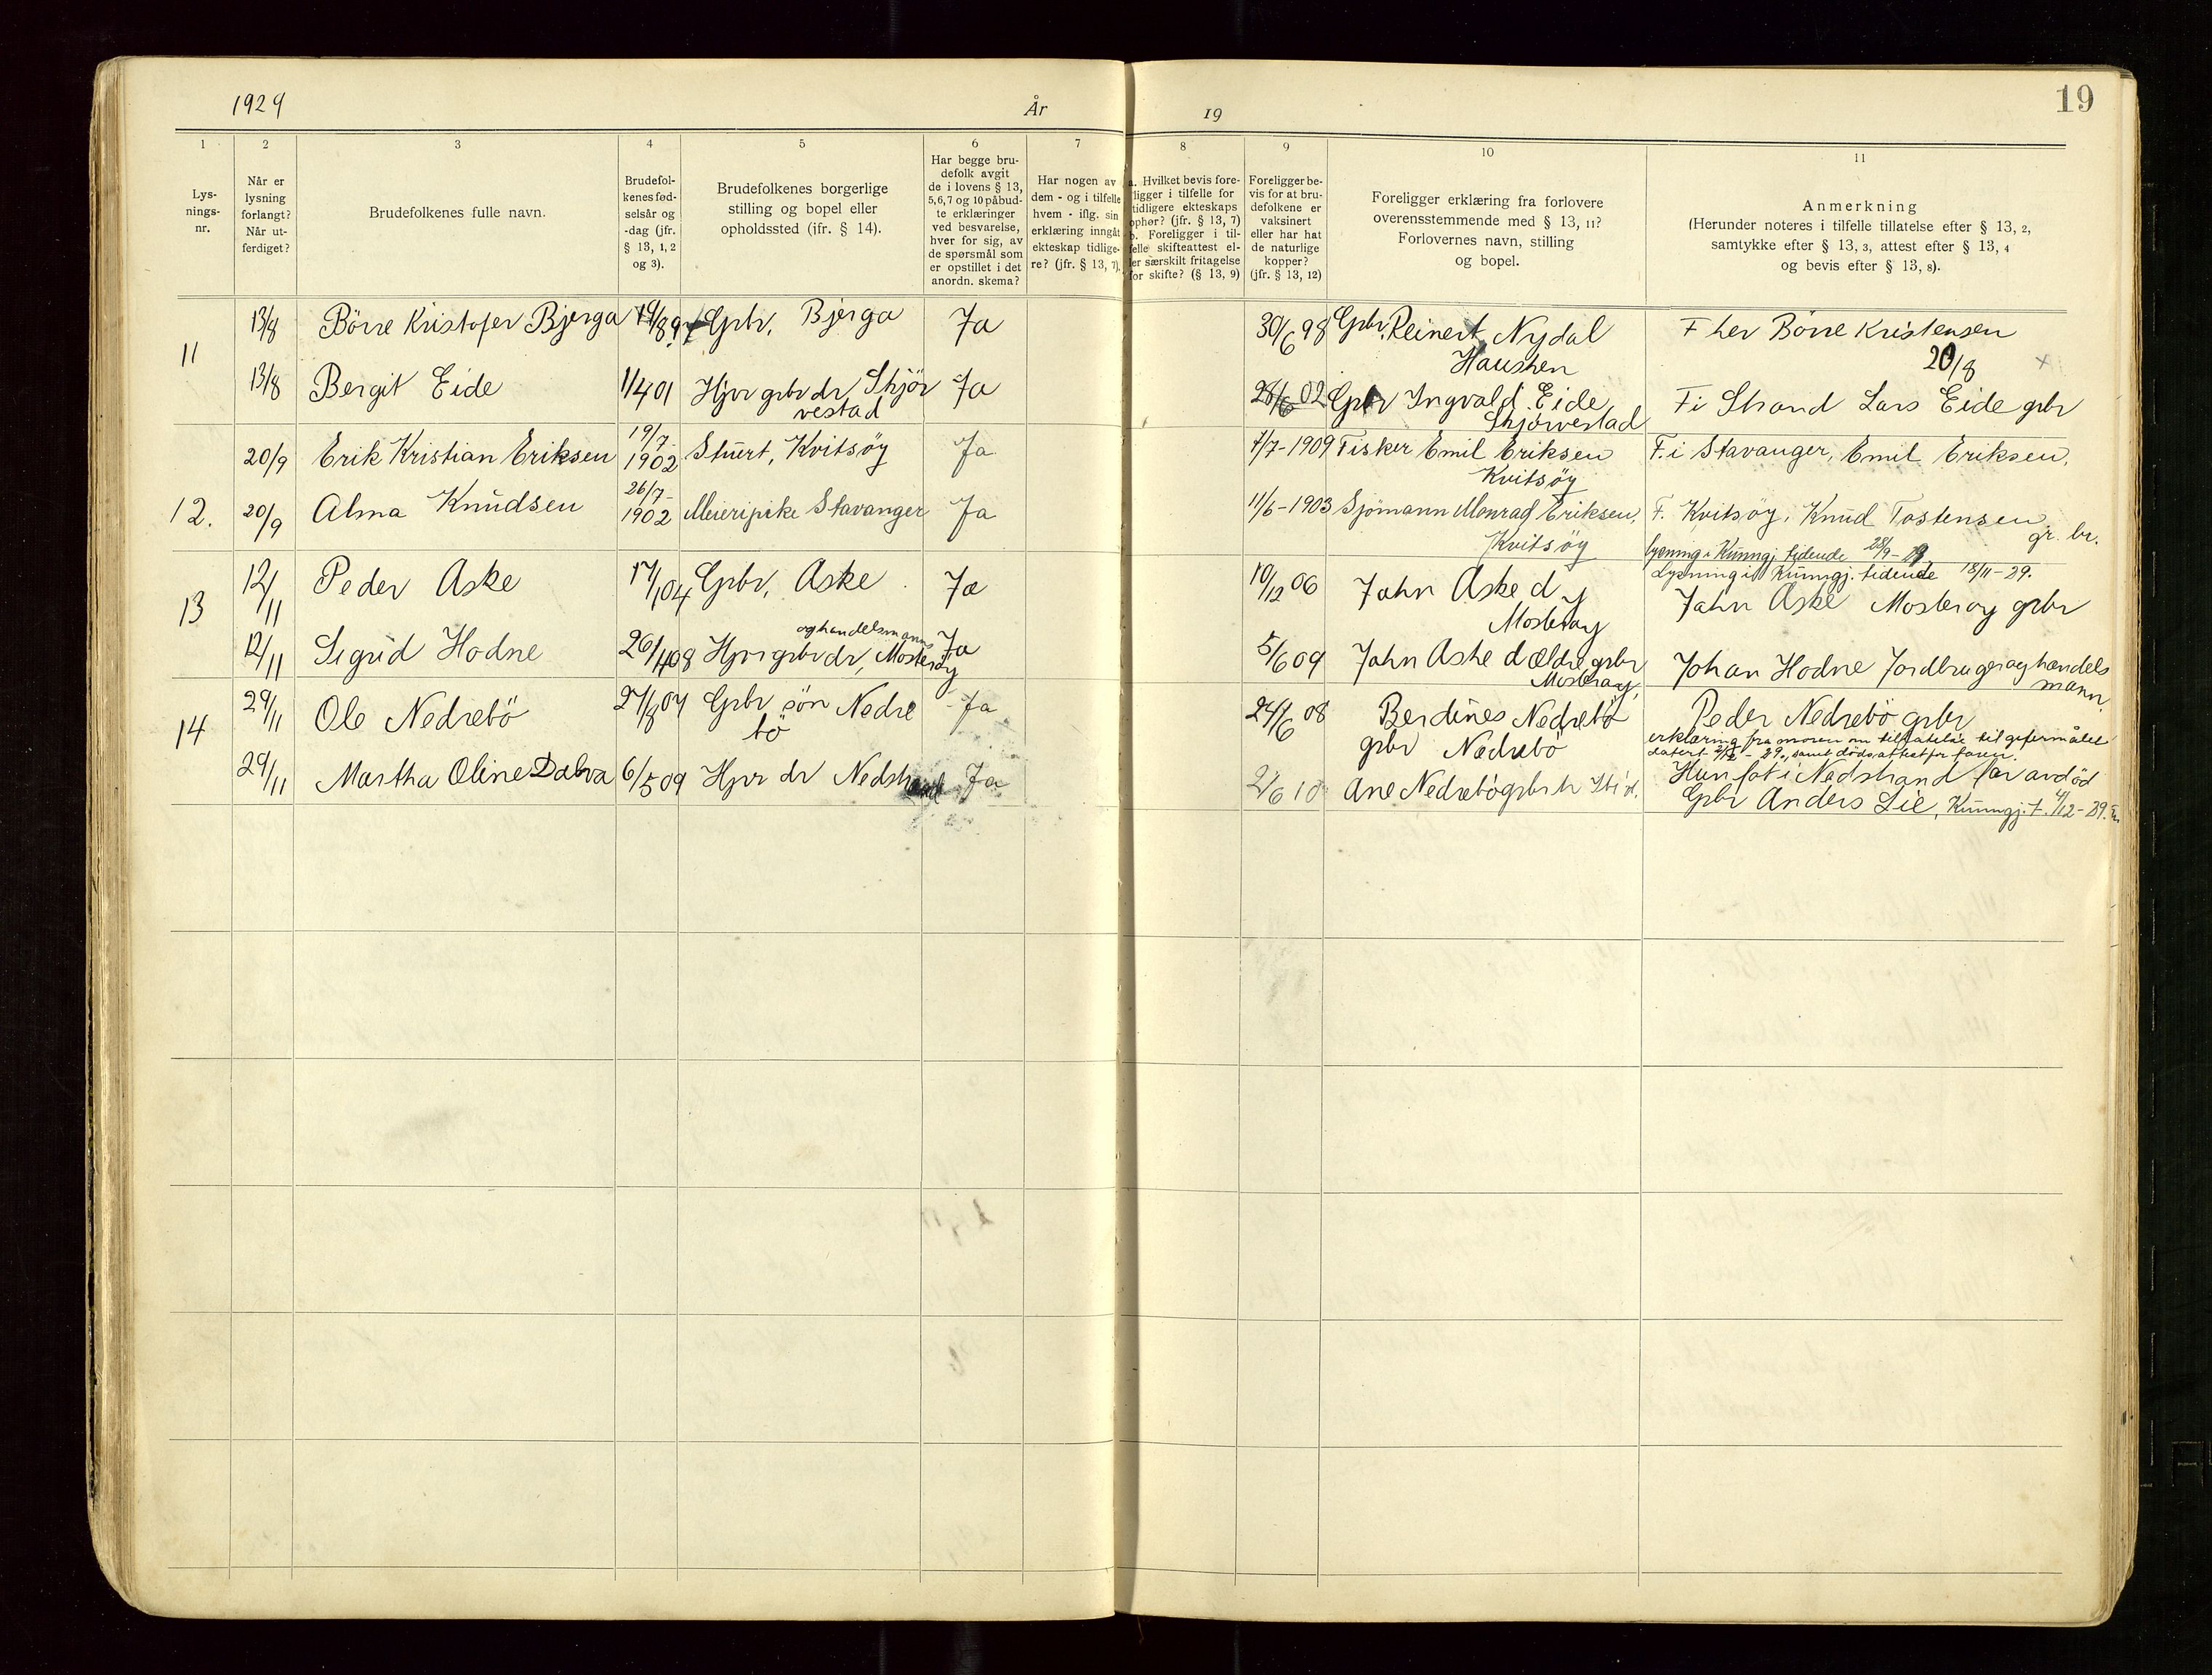 1929 År 19 19
1 2 3 4 5 6 7 8 9 10 11
Lys-
nings-
nr.
Når er
lysning
forlangt?
Når ut-
ferdiget?
Brudefolkenes fulle navn.
Brudefol-
kenes fød-
selsår og
-dag (jfr.
§ 13, 1, 2
og 3).
Brudefolkenes borgerlige
stilling og bopel eller
opholdssted (jfr. § 14).
Har begge bru-
defolk avgit
de i lovens § 13,
5,6,7 og 10 påbud-
te erklæringer
ved besvarelse,
hver for sig, av
de spørsmål som
er opstillet i det
anordn. skema?
Har nogen av
dem - og i tilfelle
hvem - iflg. sin
erklæring inngåt
ekteskap tidlige-
re? (jfr. § 13, 7).
a. Hvilket bevis fore-
ligger i tilfelle for
tidligere ekteskaps
ophør? (jfr. § 13, 7)
b. Foreligger i til-
felle skifteattest el-
ler særskilt fritagelse
for skifte? (§ 13, 9)
Foreligger be-
vis for at bru-
defolkene er
vaksinert
eller har hat
de naturlige
kopper?
(jfr. § 13, 12)
Foreligger erklæring fra forlovere
overensstemmende med § 13, 11?
Forlovernes navn, stilling
og bopel.
Anmerkning
(Herunder noteres i tilfelle tillatelse efter § 13, 2,
samtykke efter § 13, 3, attest efter § 13, 4
og bevis efter § 13, 8).
11 13/8 Börre Kristofer Bjerga Grbr, Bjerga Ja 30/6 98 Grbr. Reinert Nydal
Hausken
F her Börre Kristensen
20/8 x
13/8 Bergit Eide 1/4 01 Hjvr grbr dr Skjör
vestad
Ja 28/6 02 Grbr Ingvald Eide
Skjörvestad
F i Strand Lars Eide grbr
20/9 Erik Kristian Eriksen 19/7-
1902
Stuert, Kvitsöy Ja 7/7-1909 Fisker Emil Eriksen
Kvitsöy
F. i Stavanger, Emil Eriksen,
12. 20/9 Alma Knudsen 26/7-
1902
Meieripike Stavanger Ja 11/6-1903 Sjömann Monrad Eriksen,
Kvitsöy
F. Kvitsöy, Knud Tostensen
gr. br.
lysning i Kunngj tidende 28/9-
13 12/11 Peder Aske 17/1 04 Grbr, Aske Ja 10/12 06 Jahn Aske d y
Mosteröy
Lysning i Kunngj. tidende 18/11-29.
Jahn Aske Mosteröy grbr
12/11 Sigrid Hodne 26/4 08 Hjvr grbr dr, Mosteröy
og handelsmann
Ja 5/6 09 Jahn Aske d Ældre grbr
Mosteröy,
Johan Hodne Jordbruger og handels
mann
14 29/11 Ole Nedrebö 27/8 04 Grbr sön Nedre
bö
Ja 24/6 08 Berdines Nedrebö
grbr Nedrebö
Peder Nedrebö grbr
erklæring fra moren om tillatelse til giftermålet
datert 2/12-29, samt dödsattest for faren.
29/11 Martha Oline Dalva 6/5 09 Hjvr dr Nedstrand Ja 2/6 10 Ane Nedrebö grbr
Hun föt i Nedstrand far avdöd
Grbr Anders Lie, Kunngj. t. 4/12-29.